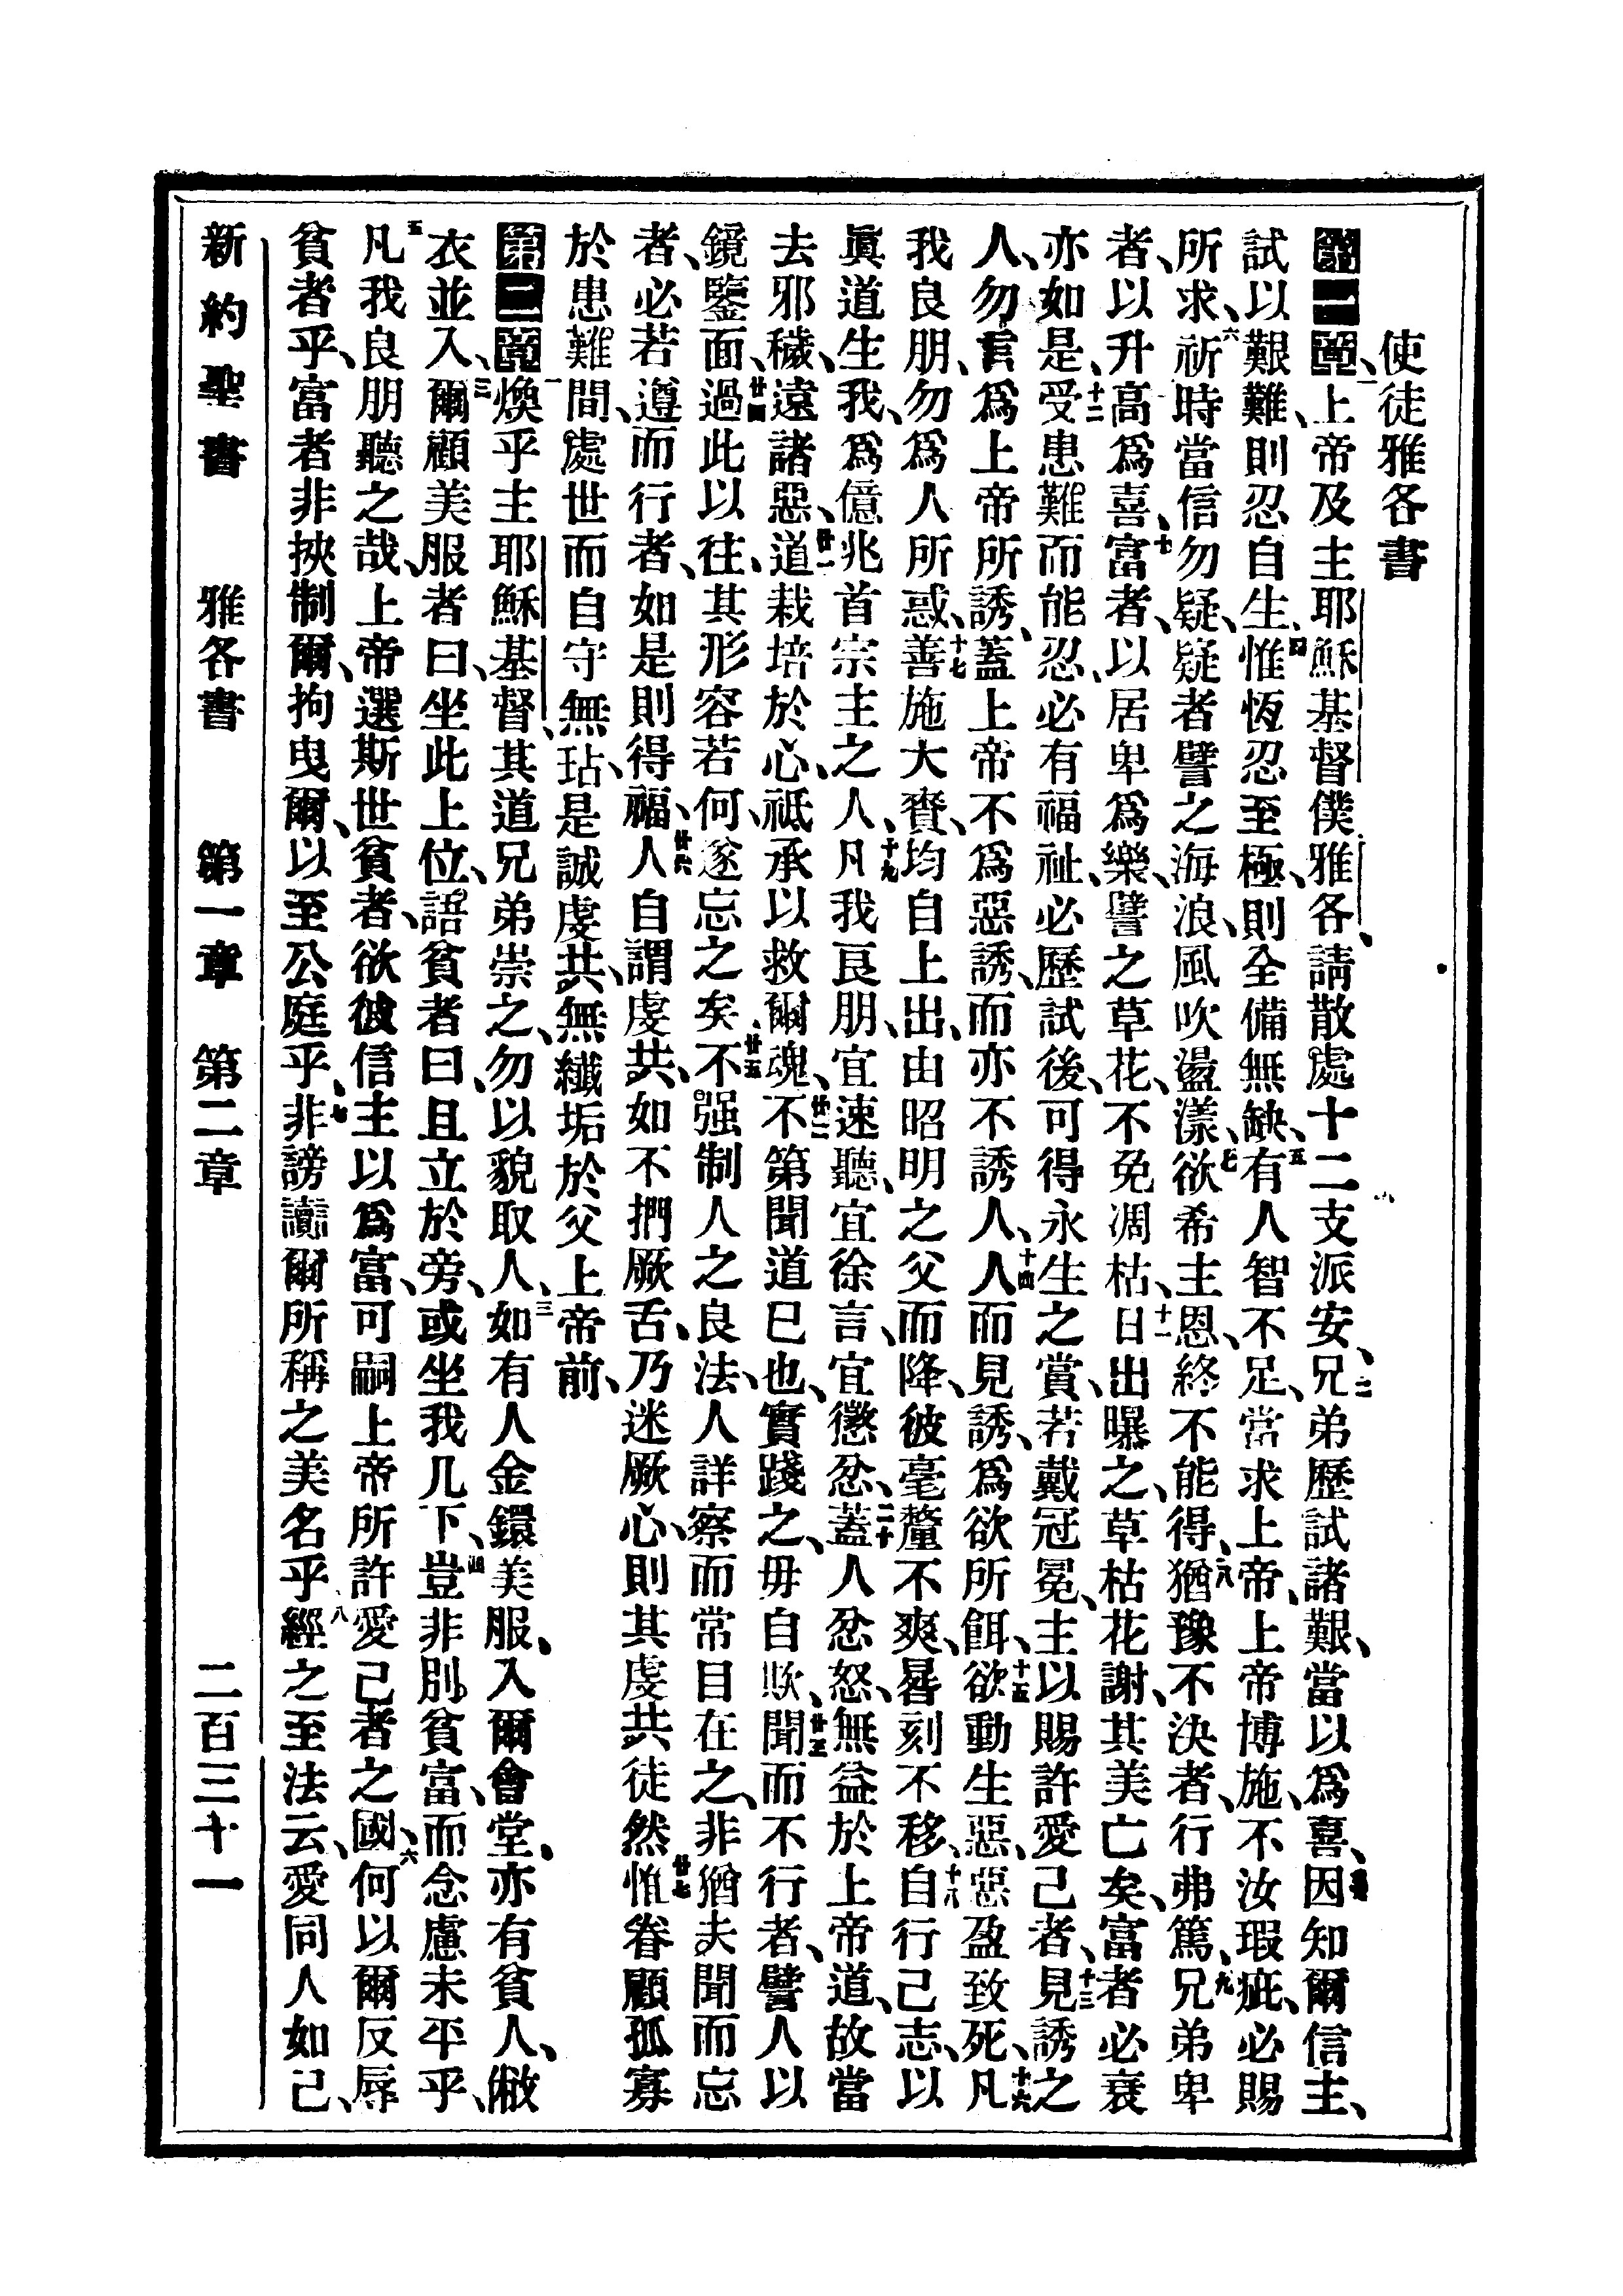 使徒雅各書
第一章、一上帝及主耶穌基督僕雅各、請散處十二支派安、二兄弟歷試諸艱、當以爲喜、三因知爾信主、
試以艱難、則忍自生、四惟恆忍至極、則全備無缺、五有人智不足、當求上帝、上帝博施、不汝瑕疵、必賜
所求、六祈時當信勿疑、疑者譬之海浪、風吹盪漾、七欲希主恩、終不能得、八猶豫不決者、行弗篤、九兄弟卑
者、以升高爲喜、十富者、以居卑爲樂、譬之草花、不免凋枯、十一日出曝之、草枯花謝、其美亡矣、富者必衰
亦如是、十二受患難而能忍、必有福祉、必歷試後、可得永生之賞、若戴冠冕、主以賜許愛己者、十三見誘之
人、勿言爲上帝所誘、蓋上帝不爲惡誘、而亦不誘人、十四人而見誘、爲欲所餌、十五欲動生惡、惡盈致死、十六凡
我良朋、勿爲人所惑、十七善施大賚、均自上出、由昭明之父而降、彼毫釐不爽、晷刻不移、十八自行己志、以
眞道生我、爲億兆首宗主之人、十九凡我良朋、宜速聽、宜徐言、宜懲忿、二十蓋人忿怒、無益於上帝道、故當
去邪穢、遠諸惡、廿一道栽培於心、祗承以救爾魂、廿二不第聞道已也、實踐之、毋自欺、廿三聞而不行者、譬人以
鏡鑒面、廿四過此以往、其形容若何、遂忘之矣、廿五不强制人之良法、人詳察而常目在之、非猶夫聞而忘
者、必若遵而行者、如是則得福、廿六人自謂虔共、如不捫厥舌、乃迷厥心、則其虔共徒然、廿七惟眷顧孤寡
於患難間、處世而自守無玷、是誠虔共、無纖垢於父上帝前、
第二章一煥乎主耶穌基督、其道兄弟崇之、勿以貌取人、二如有人金鐶美服、入爾會堂、亦有貧人、敝
衣並入、三爾顧美服者曰、坐此上位、語貧者曰、且立於旁、或坐我几下、四豈非別貧富、而念慮未平乎、
五凡我良朋聽之哉、上帝選斯世貧者、欲彼信主以爲富、可嗣上帝所許愛己者之國、六何以爾反辱
貧者乎、富者非挾制爾、拘曳爾、以至公庭乎、七非謗讟爾所稱之美名乎、八經之至法云、愛同人如己、
新約聖書　雅各書　第一章　第二章　二百三十一